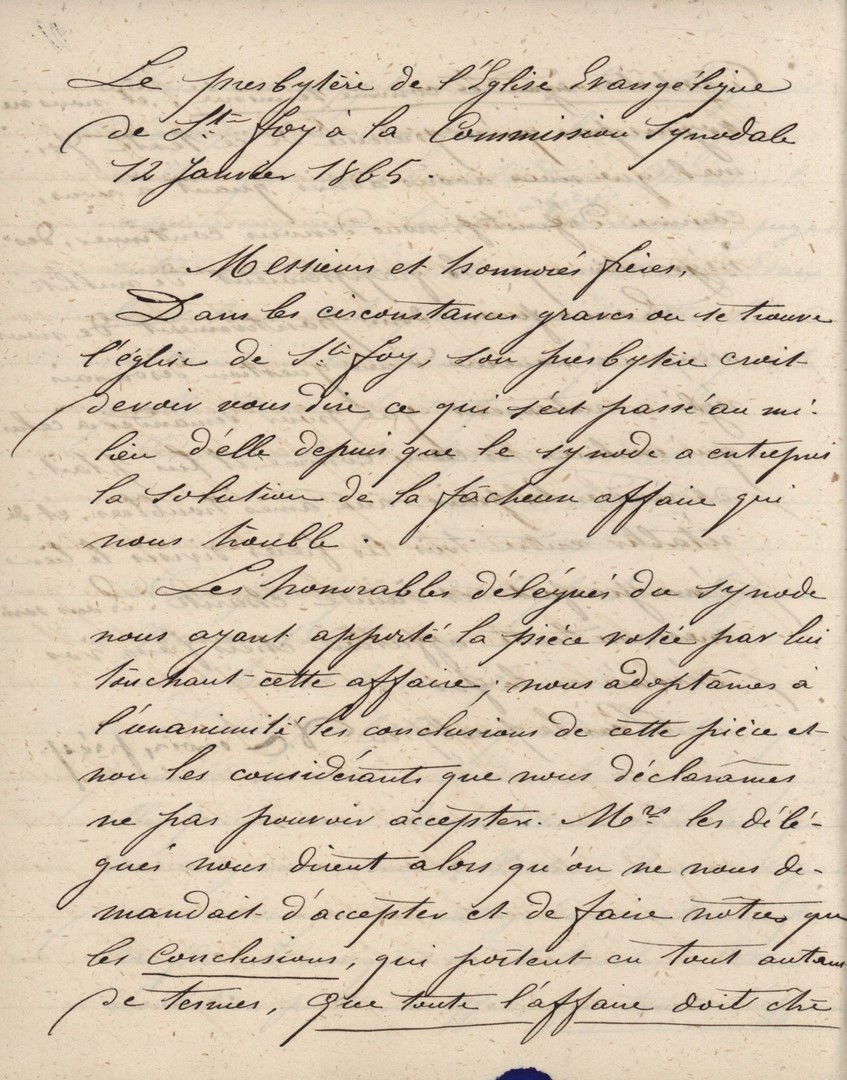 Le presbytère de l'Église Evangélique
de Ste Foy à la Commission Synodale
12 Janvier 1865.
Messieurs et honnorés frères,
Dans les circonstances graves ou se trouve
l'église de Ste Foy, son presbytère croit
devoir vous dire ce qui s'est passé au mi-
lieu d'elle depuis que le synode a entrepris
la solution de la fâcheuse affaire qui
nous trouble.
Les honorables délégués du synode
nous ayant apporté la pièce votée par lui
touchant cette affaire; nous adoptâmes à
l'unanimité les conclusions de cette pièce et
non les considérants que nous déclarâmes
ne pas pouvoir accepter. Mrs les délé-
gués nous dirent alors qu'on ne nous de-
mandait d'accepter et de faire nôtres que
les Conclusions, qui portent en tout autant
de termes, que toute l'affaire doit être